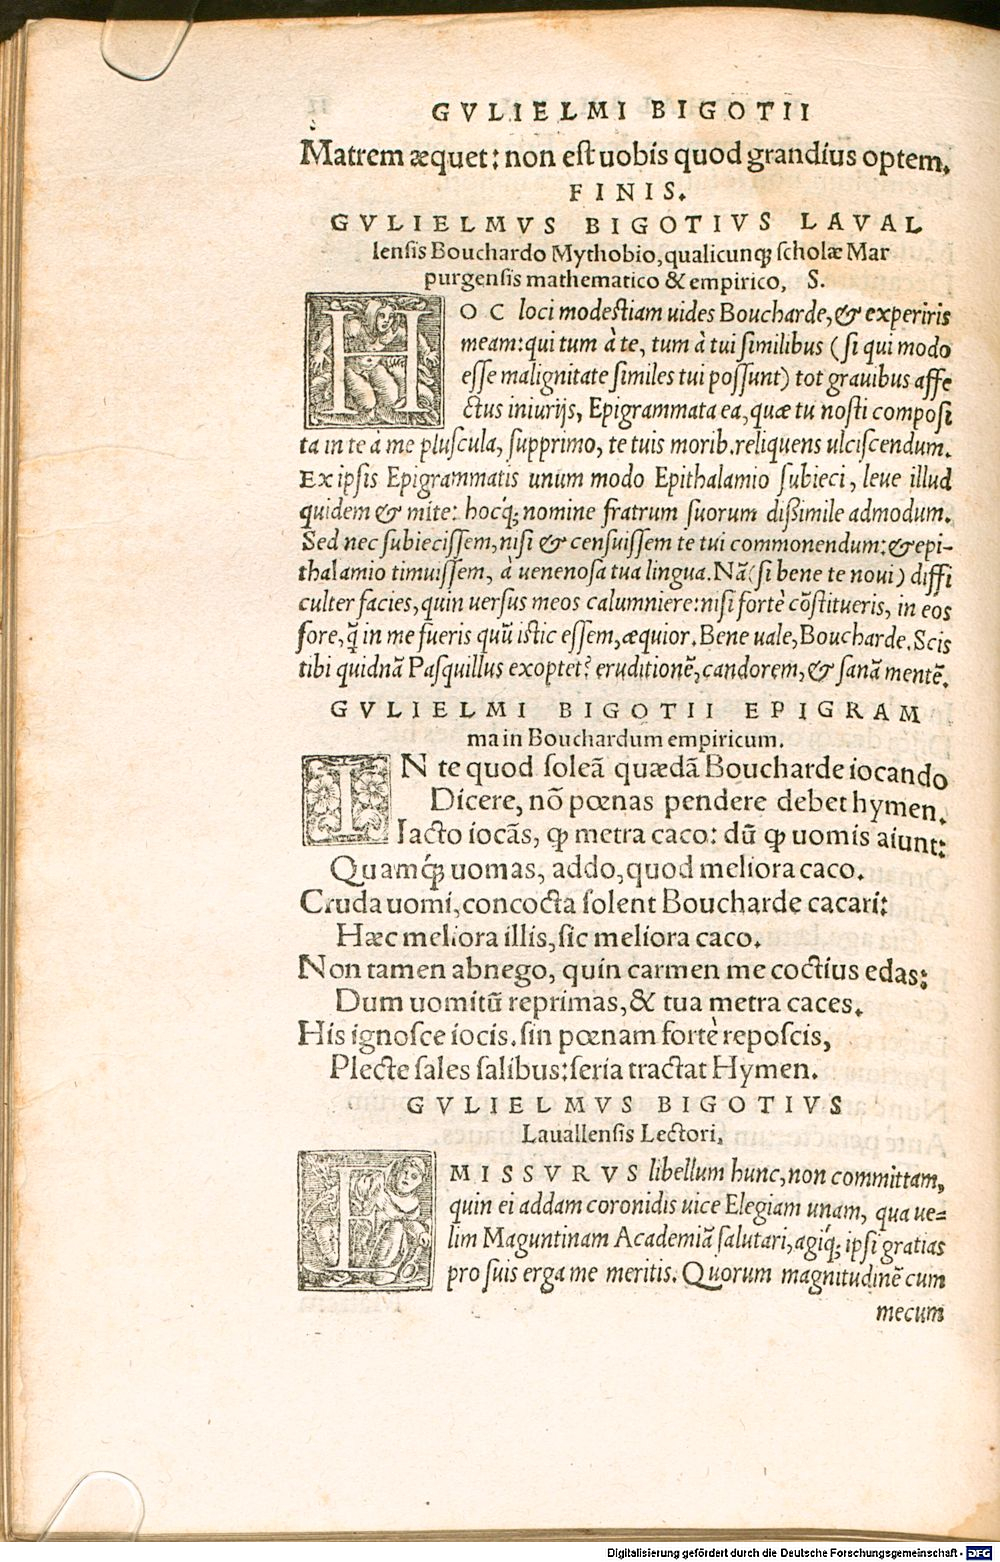 GVLIELMI BIGOTII
Matrem æquet: non est uobis quod grandius optem.
FINIS.
GVLIELMVS BIGOTIVS LAVAL
lensis Bouchardo Mythobio, qualicunq̃ scholæ Mar
purgensis mathematico & empirico, S.
HOC loci modestiam uides Boucharde, & experiris
meam: qui tum à te, tum à tui similibus (si qui modo
esse malignitate similes tui possunt) tot grauibus affe
ctus iniurijs, Epigrammata ea, quæ tu nosti composi
ta in te à me pluscula, supprimo, te tuis morib. reliquens ulciscendum.
Ex ipsis Epigrammatis unum modo Epithalamio subieci, leue illud
quidem & mite: hocq́; nomine fratrum suorum dißimile admodum.
Sed nec subiecissem, nisi & censuissem te tui commonendum: & epi-
thalamio timuissem, à uenenosa tua lingua. Nã (si bene te noui) diffi
culter facies, quin uersus meos calumniere: nisi fortè cõstitueris, in eos
fore, q̃ in me fueris quũ istic essem, æquior. Bene uale, Boucharde. Scis
tibi quidnã Pasquillus exoptet? eruditionẽ, candorem, & sanã mentẽ.
GVLIELMI BIGOTII EPIGRAM
ma in Bouchardum empiricum.
IN te quod soleã quædã Boucharde iocando
Dicere, nõ pœnas pendere debet hymen.
Iacto iocãs, ꝙ metra caco: dũ ꝙ uomis aiunt:
Quamq́; uomas, addo, quod meliora caco.
Cruda uomi, concocta solent Boucharde cacari:
Hæc meliora illis, sic meliora caco.
Non tamen abnego, quin carmen me coctius edas:
Dum uomitũ reprimas, & tua metra caces.
His ignosce iocis. sin pœnam fortè reposcis,
Plecte sales salibus: seria tractat Hymen.
GVLIELMVS BIGOTIVS
Lauallensis Lectori,
EMISSVRVS libellum hunc, non committam,
quin ei addam coronidis uice Elegiam unam, qua ue=
lim Maguntinam Academiã salutari, agiq́; ipsi gratias
pro suis erga me meritis. Quorum magnitudinẽ cum
mecum
Digitalisierung gefördert durch die Deutsche Forschungsgemeinschaft - DFG